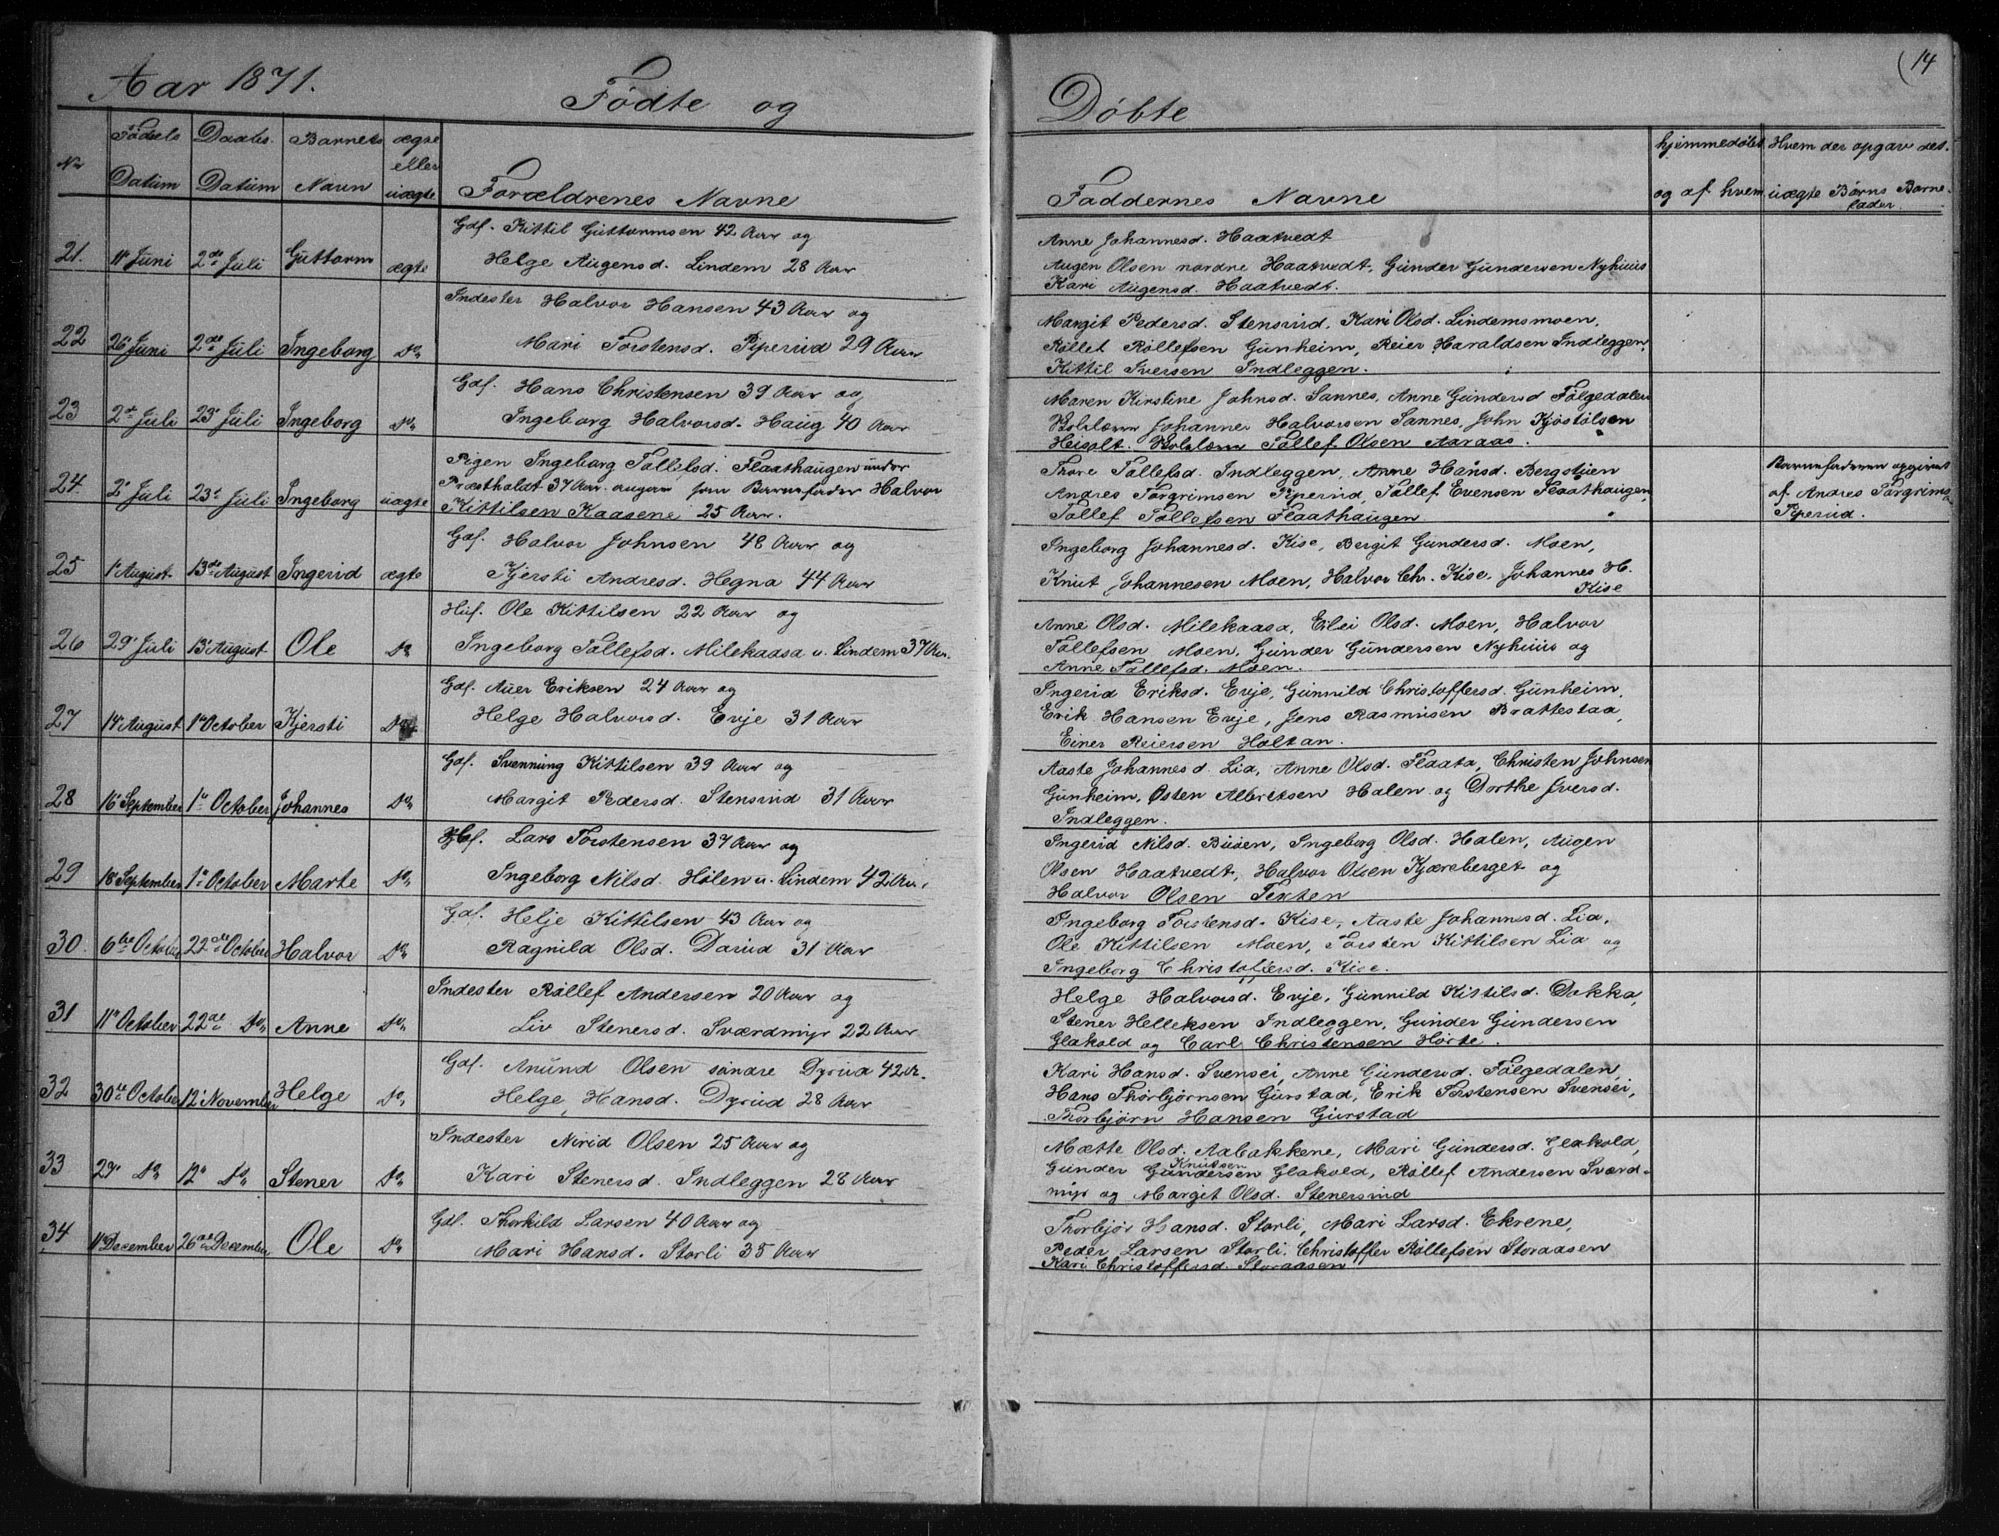 (14
Aar 1871.
Fødte og
Døbte
No
Fødsels Datum
Daabs Datum
Barnets Navn
ægte eller uægte
Forældrenes Navne
Faddernes Navne
hjemmedøbt og af hvem
Hvem der opgav det uægte Børns Barnefader.
21. 11e Juni 2den Juli Guttorm ægte
Gdf. Kittil Guttormsen 42 Aar og
Helge Augensd. Lindem 28 Aar
Anne Johannesd. Haatvedt
Augen Olsen nordre Haatvedt, Gunder Gundersen Nyhuus
Kari Augensd. Haatvedt.
22 26e Juni 2den Juli Ingeborg Do
Inderster Halvor Hansen 43 Aar og
Mari Torstensd. Piperud 29 Aar
Margit Pedersd. Stensrud, Kari Olsd. Lindemsmoen,
Rollef Rollefsen Gunheim, Reier Haraldsen Indleggen,
Kittil Iversen Indleggen.
23 2de Juli 23e Juli Ingeborg Do
Gdf. Hans Christensen 39 Aar og
Ingeborg Halvorsd. Haug 40 Aar
Maren Kirstine Johnsd. Sannes, Anne Gundersd Følgedalen
Johannes Halvorsen Sannes, John Kjøstolsen
Tollef Olsen Aaraas.
24. 2e Juli 23e Juli Ingeborg uægte
Pigen Ingeborg Tollefsd. Flaathaugen under
Præstholdt 37 Aar angav som Barnefader Halvor
Kittilsen Kaasene 25 Aar.
Thore Tollefsd. Indleggen, Anne Hansd. Bergstjen
Andres Torgrimsen Piperud, Tollef Evensen Flaathaugen,
Tollef Tollefsen Flaathaugen
Barnefaderen opgivet
af Andres Torgrims.
Piperud.
25 1e August 13de August Ingerid ægte
Gdf. Halvor Johnsen 48 Aar og
Kjersti Andresd. Hegna 44 Aar
Ingeborg Johannesd. Kise, Bergit Gundersd. Moen,
Knut Johannesen Moen, Halvor Chr. Kise, Johannes H.
Kise
26 29e Juli 13e August Ole Do
Huf. Ole Kittilsen 22 Aar og
Ingeborg Tollefsd. Milekaasa u. Lindem 37 Aar.
Anne Olsd. Milekaasa, Eilei Olsd. Moen, Halvor
Tollefsen Moen, Gunder Gundersen Nyhuus og
Anne Tollefsd. Moen.
27 14e August 1e October Kjersti Do
Gdf. Auer Eriksen 24 Aar og
Helge Halvorsd. Evje 31 Aar
Ingerid Eriksd. Evje, Gunnild Christoffersd. Gunheim,
Erik Hansen Evje, Jens Rasmusen Brattestaa,
Einer Reiersen Holtan.
28 16e September 1e October Johannes Do
Gdf. Svennung Kittilsen 39 Aar og
Margit Pedersd. Stensrud 31 Aar
Aaste Johannesd. Lia, Anne Olsd. Flaata, Christen Johnsen
Gunheim, Østen Albretsen Halen og Dorthe Iversd.
Indleggen.
29 18e September 1e October Marte Do
Huf. Lars Torstensen 37 Aar og
Ingeborg Nilsd. Holen u. Lindem 42 Aar.
Ingerid Nilsd. Buøen, Ingeborg Olsd. Halen, Augen
Olsen Haatvedt, Halvor Olsen Kjæreberget og
Halvor Olsen Texten
30. 6te October 22de October Halvor Do
Gdf. Helje Kittilsen 43 Aar og
Ragnild Olsd. Darud 31 Aar
Ingeborg Torstensd. Kise, Aaste Johannesd. Lia,
Ole Kittilsen Moen, Torsten Kittilsen Lia og
Ingeborg Christofersd. Kise.
31 11e October 22de Do Anne Do
Inderster Rollef Andersen 20 Aar og
Liv Stenersd. Sværdmyr 22 Aar
Helge Halvorsd. Evje, Gunnild Kittilsd. Dakka,
Stener Helleksen Indleggen, Gunder Gundersen
Glakold og Carl Christensen Hørte.
32 30te October 12e November Helge Do
Gdf. Anund Olsen søndre Dyrud 42 A.
Helge Hansd. Dyrud 28 Aar
Kari Hansd. Svensei, Anne Gundersd. Følgedalen,
Hans Thorbjørnsen Gurstad, Erik Torstensen Svensei,
Thorbjørn Hansen Gurstad
33 27e Do 12e Do Stener Do
Inderster Nirid Olsen 25 Aar og
Kari Stenersd. Indleggen 28 Aar
Mætte Olsd. Aabakkene, Mari Gundersd. Glakold,
Knutsen
Gunder Gundersen Glakold, Rollef Andersen Sværd-
myr og Margit Olsd. Stenersrud
34 11e December 26de December Ole Do
Gdf. Thorkild Larsen 40 Aar og
Mari Hansd. Storli 35 Aar
Thorbjør Hansd. Storli, Mari Larsd. Ekrene,
Peder Larsen Storli, Christoffer Rollefsen Storaasen
Kari Christoffersd. Storaasen